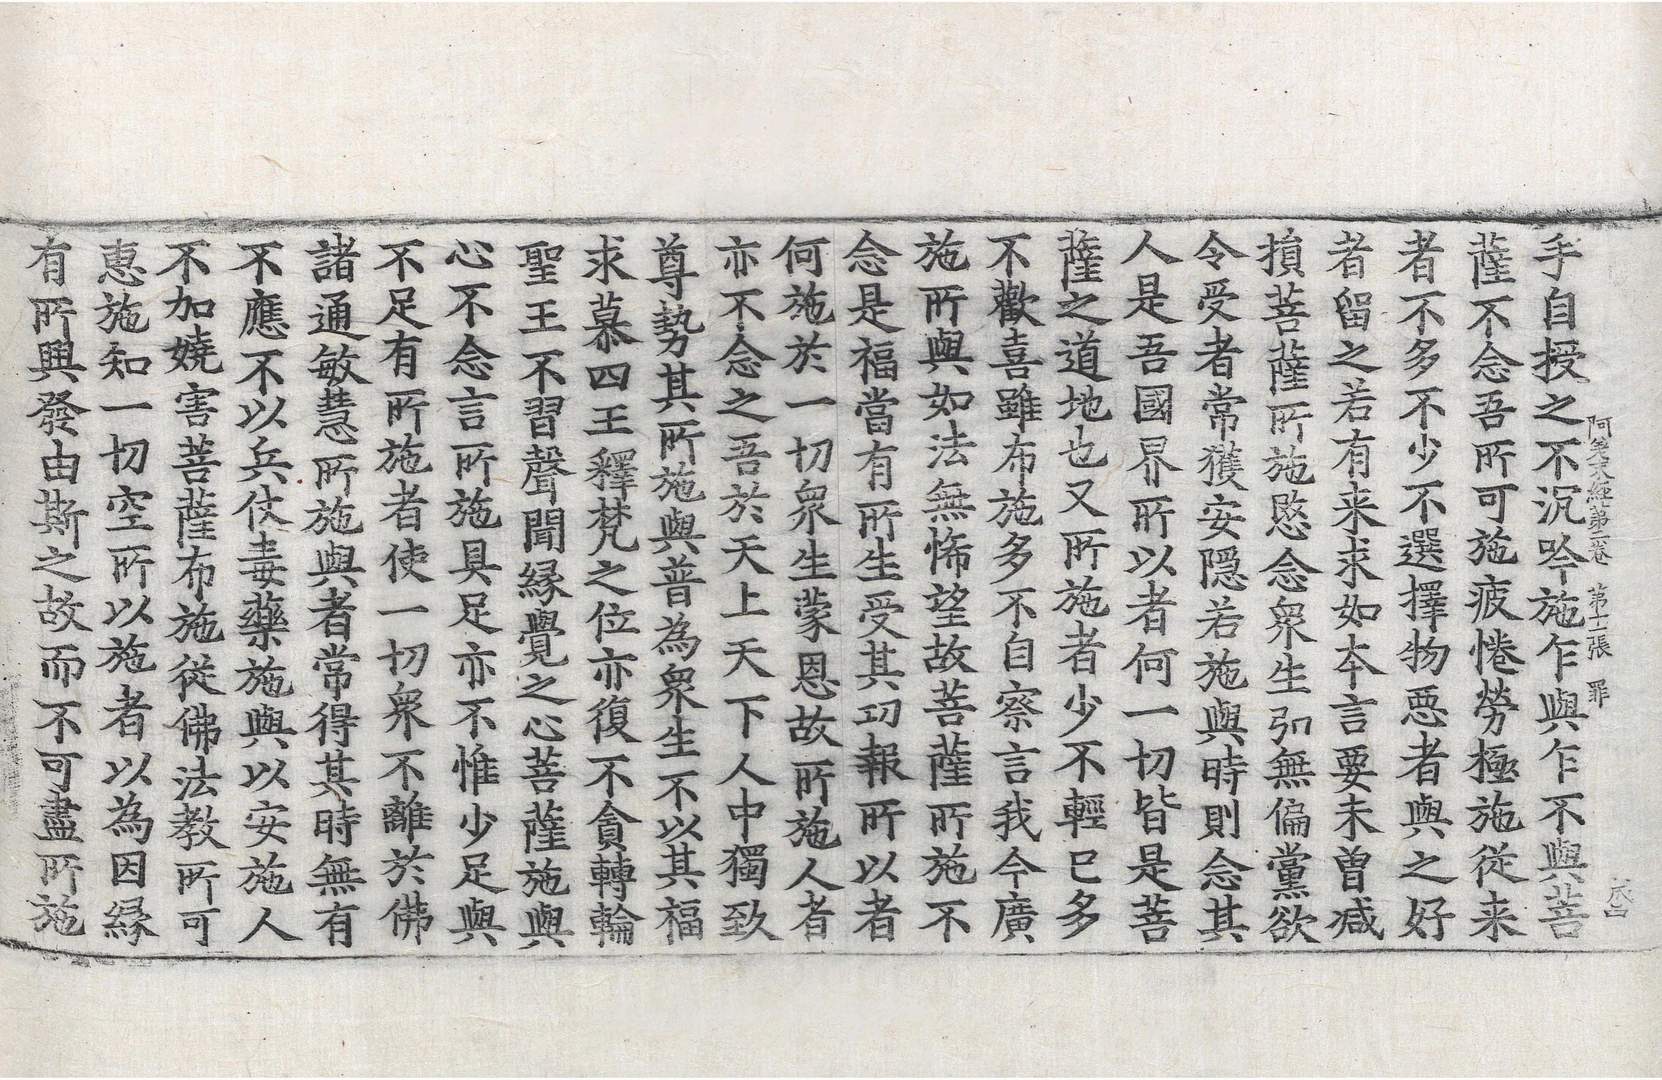 手自授之不沉吟施乍與乍不與菩
阿差末經第二卷　第十一張　罪
薩不念吾所可施疲惓勞極施從来
者不多不少不選擇物惡者與之好
者留之若有来求如本言要未曾減
損菩薩所施愍念衆生弘無偏黨欲
令受者常獲安隠若施與時則念其
人是吾國界所以者何一切皆是菩
薩之道地也又所施者少不輕已多
不歡喜雖布施多不自察言我今廣
施所與如法無悕望故菩薩所施不
念是福當有所生受其功報所以者
何施於一切衆生蒙恩故所施人者
亦不念之吾於天上天下人中獨致
尊勢其所施與普為衆生不以其福
求慕四王釋梵之位亦復不貪轉輪
聖王不習聲聞縁覺之心菩薩施與
心不念言所施具足亦不惟少足與
不足有所施者使一切衆不離於佛
諸通敏慧所施與者常得其時無有
不應不以兵仗毒藥施與以安施人
不加嬈害菩薩布施從佛法教所可
惠施知一切空所以施者以為因縁
有所興發由斯之故而不可盡所施